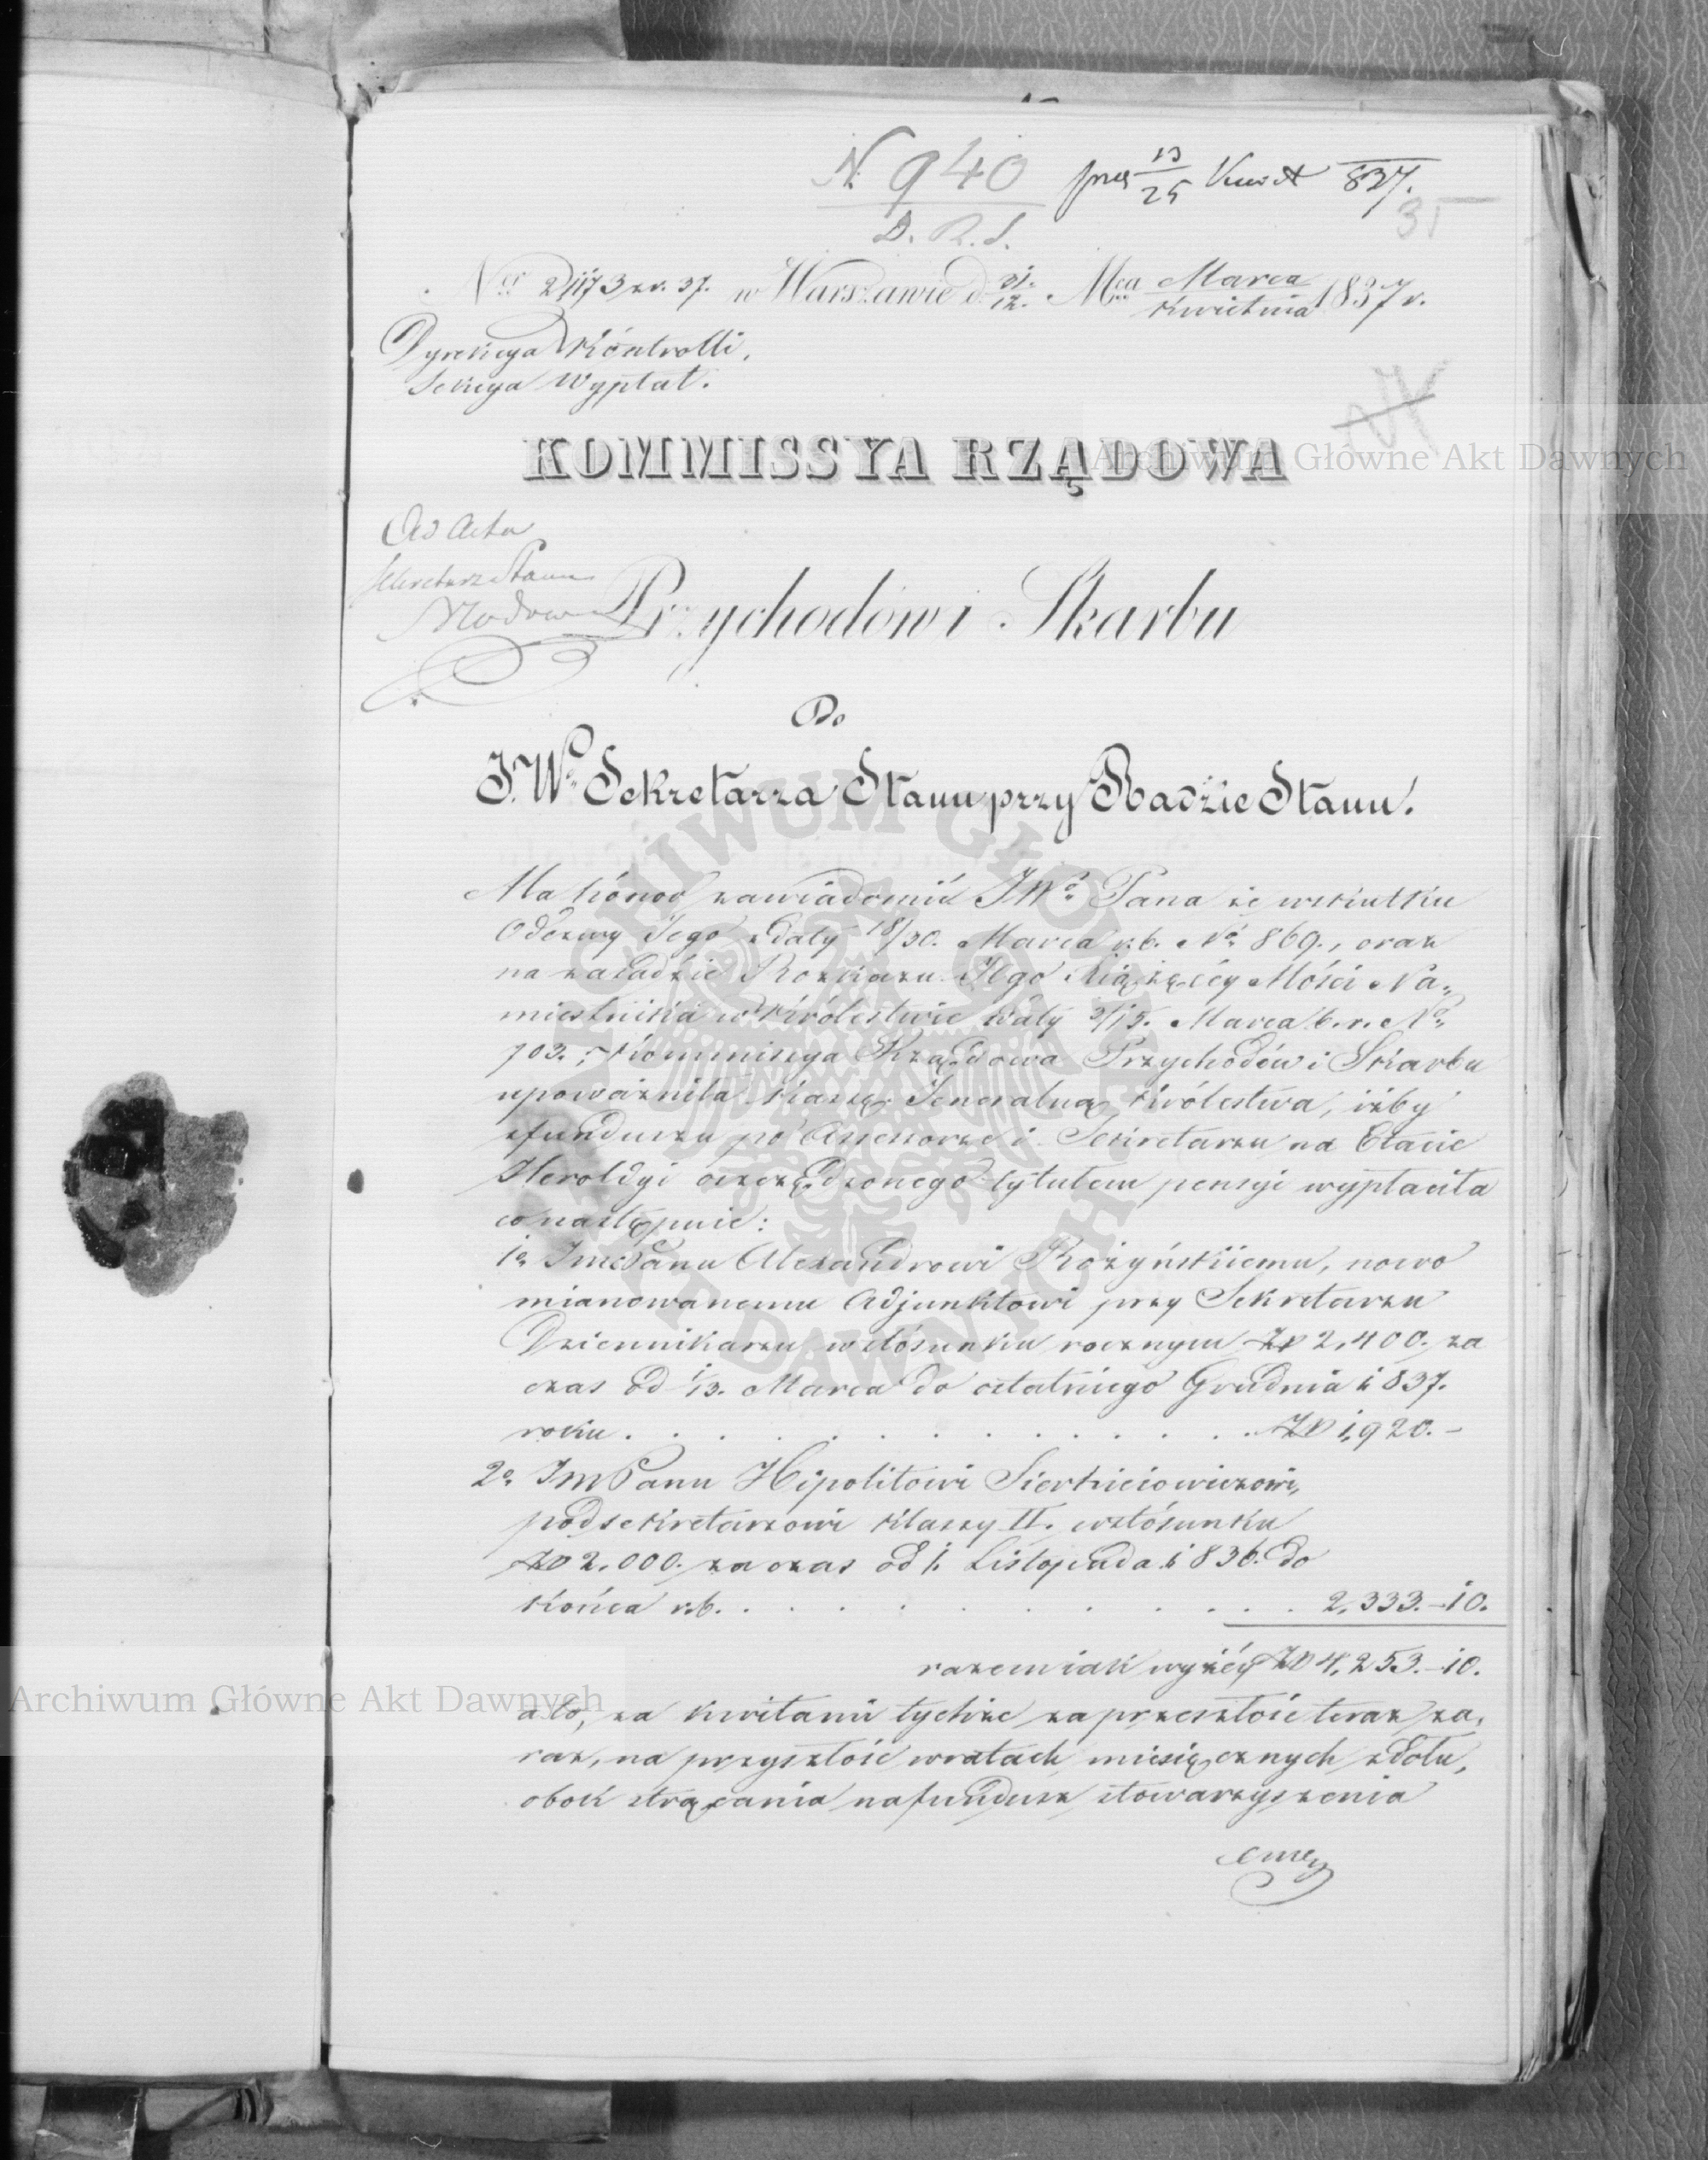 N. 940 prez 13/25 Kwiet 837.
D. R. S.
35
Nr 21173 z r. 37. w Warszawie d. 31./12. Mca Marca/Kwietnia 1837 r.
Dyrekcya Kontrolli,
Sekcya Wypłat.
KOMMISSYA RZĄDOWA
Ad Acta
Sekretarz Stanu
Przychodów i Skarbu
Do
J.Wo Sekretarza Stanu przy Radzie Stanu.
Ma honor zawiadomić JWo Pana że wskutku
Odezwy Jego z daty 18/30. Marca r.b. No 869., oraz
na zasadzie Rozkazu Jego Xiążęcéy Mości Na„
miestnika w Królestwie z daty 3/15. Marca b.r. No
703., Kommissya Rządowa Przychodów i Skarbu
upoważniła Kassę Jeneralną Królestwa, iżby
z funduszu po Assessorze i Sekretarzu na Etacie
Heroldyi oszczędzonego tytułem pensyi wypłaciła
co następuie:
1o Jmć Panu Alexandrowi Rożyńskiemu, nowo
mianowanemu Adjunktowi przy Sekretarzu
Dziennikarzu w stósunku rocznym Zł 2,400. za
czas od 1/13. Marca do ostatniego Grudnia 1837.
roku . . . . . . . . . . Zł 1,920.–
2o JmPanu Hipolitowi Sierkuciowiczowi,
podsekretarzowi klassy II. w stósunku
Zł 2,000. za czas od 1. Listopada 1836. do
końca r.b. . . . . . . . . . . 2,333.–10.
razem iak wyżéy Zł 4,253.–10.
a to, za kwitami tychże za przeszłość teraz za„
raz, na przyszłość w ratach miesięcznych z dołu,
obok strącania na fundusz stowarzyszenia
emery
Archiwum Główne Akt Dawnych
Archiwum Główne Akt Dawnych
ARCHIWUM GŁÓWNE AKT DAWNYCH